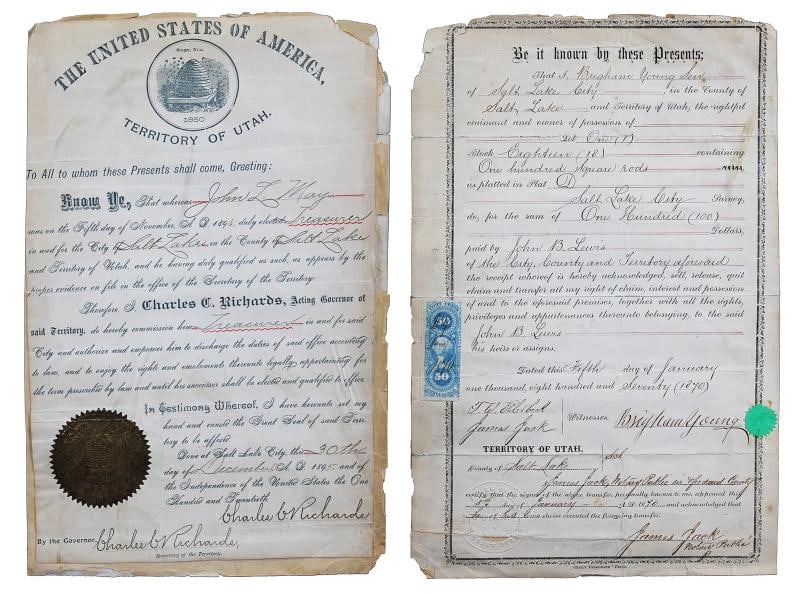 THE UNITED STATES OF AMERICA,
1850
TERRITORY OF UTAH.
To All to whom these Presents shall come, Greeting:
Know Ye, That whereas John L. May
was on the Fifth day of November A. D. 1895, duly elected Treasurer
in and for the City of Salt Lake in the County of Salt Lake
and Territory of Utah, and he having duly qualified as such, as appears by the
proper evidence on file in the office of the Secretary of the Territory.
Therefore, I Charles C. Richards, Acting Governor of
said Territory, do hereby commission him Treasurer in and for said
City and authorize and empower him to discharge the duties of said office according
to law, and to enjoy the rights and emoluments thereunto legally appertaining for
the term prescribed by law and until his successor shall be elected and qualified to office.
In Testimony Whereof, I have hereunto set my
hand and caused the Great Seal of said Terri-
tory to be affixed.
Done at Salt Lake City, this 30th
day of December A. D. 1895, and of
the Independence of the United States the One
Hundred and Twentieth
Charles C Richards
By the Governor,
Charles C Richards,
Secretary of the Territory.
Be it known by these Presents;
That I, Brigham Young Sen
of Salt Lake City in the County of
Salt Lake and Territory of Utah, the rightful
claimant and owner of possession of
Lot One (1)
Block Eighteen (18) containing
One hundred Square rods
as platted in Plat D
Salt Lake City Survey,
do, for the sum of One Hundred (100)
Dollars,
paid by John B. Lewis
of the City, County and Territory aforesaid
the receipt whereof is hereby acknowledged, sell, release, quit
claim and transfer all my right of claim, interest and possession
of and to the aforesaid premises, together with all the rights,
privileges and appurtenances thereunto belonging, to the said
John B. Lewis
his heirs or assigns.
Dated this Fifth day of January
one thousand, eight hundred and Seventy (1870)
50
50
James Jack
Witnesses
Brigham Young
TERRITORY OF UTAH,
County of Salt Lake
James Jack, Notary Public in & for said County
certify that the signer of the above transfer, personally known to me, appeared this
5th day of January A. D. 1870 and acknowledged that
he of his own choice executed the foregoing transfer.
James Jack
Notary Public